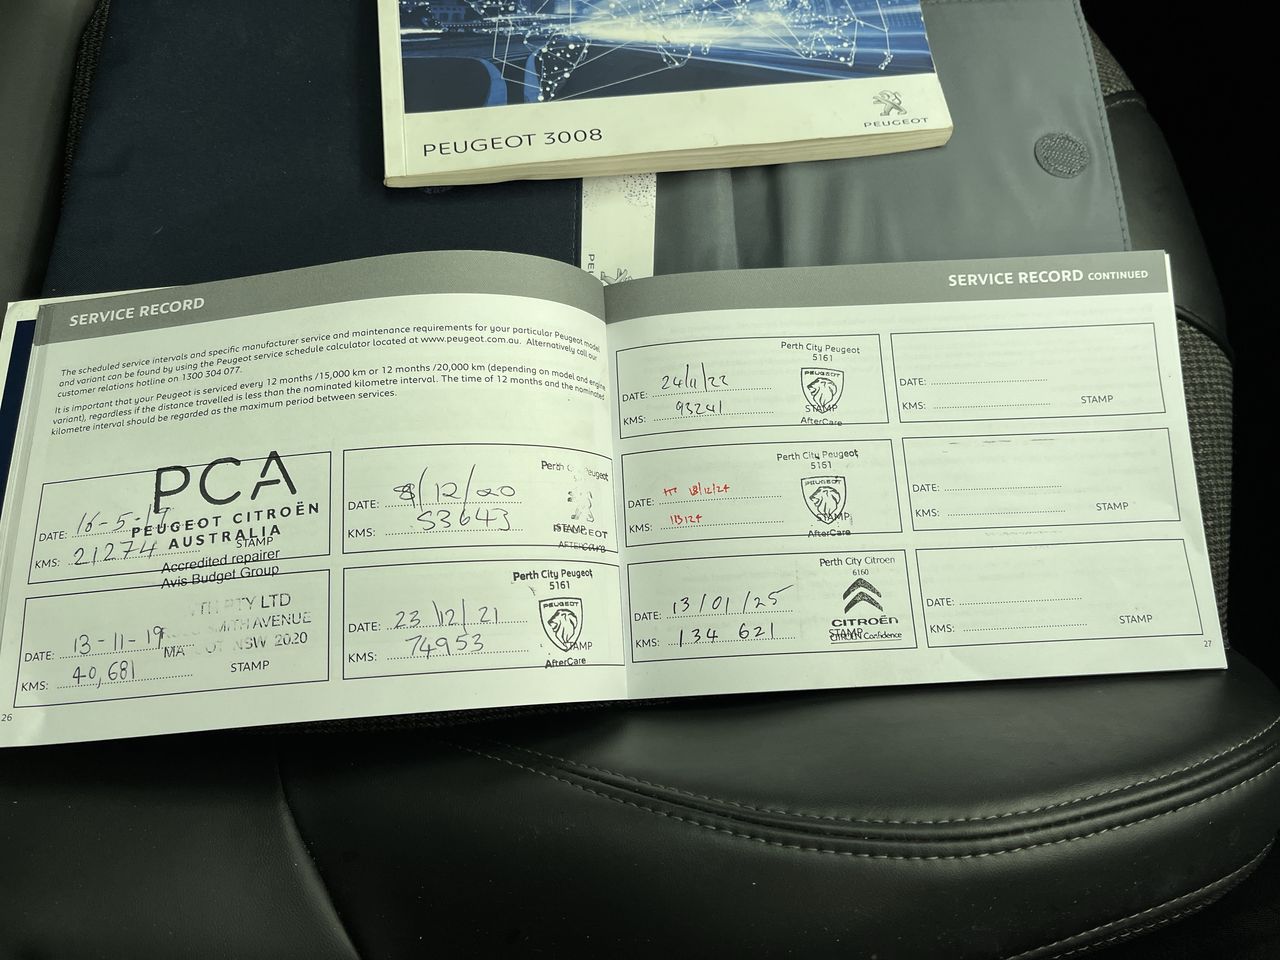 PEUGEOT 3008
PEUGEOT
SERVICE RECORD
The scheduled service intervals and specific manufacturer service and maintenance requirements for your particular Peugeot model
and variant can be found by using the Peugeot service schedule calculator located at www.peugeot.com.au. Alternatively call our
customer relations hotline on 1300 304 077.
It is important that your Peugeot is serviced every 12 months /15,000 km or 12 months /20,000 km (depending on model and engine
variant), regardless if the distance travelled is less than the nominated kilometre interval. The time of 12 months and the nominated
kilometre interval should be regarded as the maximum period between services.
PCA
PEUGEOT CITROËN
AUSTRALIA
Accredited repairer
Avis Budget Group
DATE:
KMS: 21274
STAMP
DATE: 8/12/20
KMS: 53643
Perth
Peugeot
STAMP
PEUGEOT
AFTERcare
PTY LTD
SMITH AVENUE
NSW 2020
DATE: 13-11-19
KMS: 40,681
STAMP
Perth City Peugeot
5161
DATE: 23/12/21
KMS: 74953
PEUGEOT
STAMP
AfterCare
26
SERVICE RECORD CONTINUED
Perth City Peugeot
5161
DATE: 24/11/22
KMS: 93241
PEUGEOT
STAMP
AfterCare
DATE:
KMS:
STAMP
Perth City Peugeot
5161
DATE: 18/12/24
KMS:
PEUGEOT
STAMP
AfterCare
DATE:
KMS:
STAMP
Perth City Citroen
6160
DATE: 13/01/25
KMS: 134 621
CITROËN
STAMP
CITROËN Confidence
DATE:
KMS:
STAMP
27